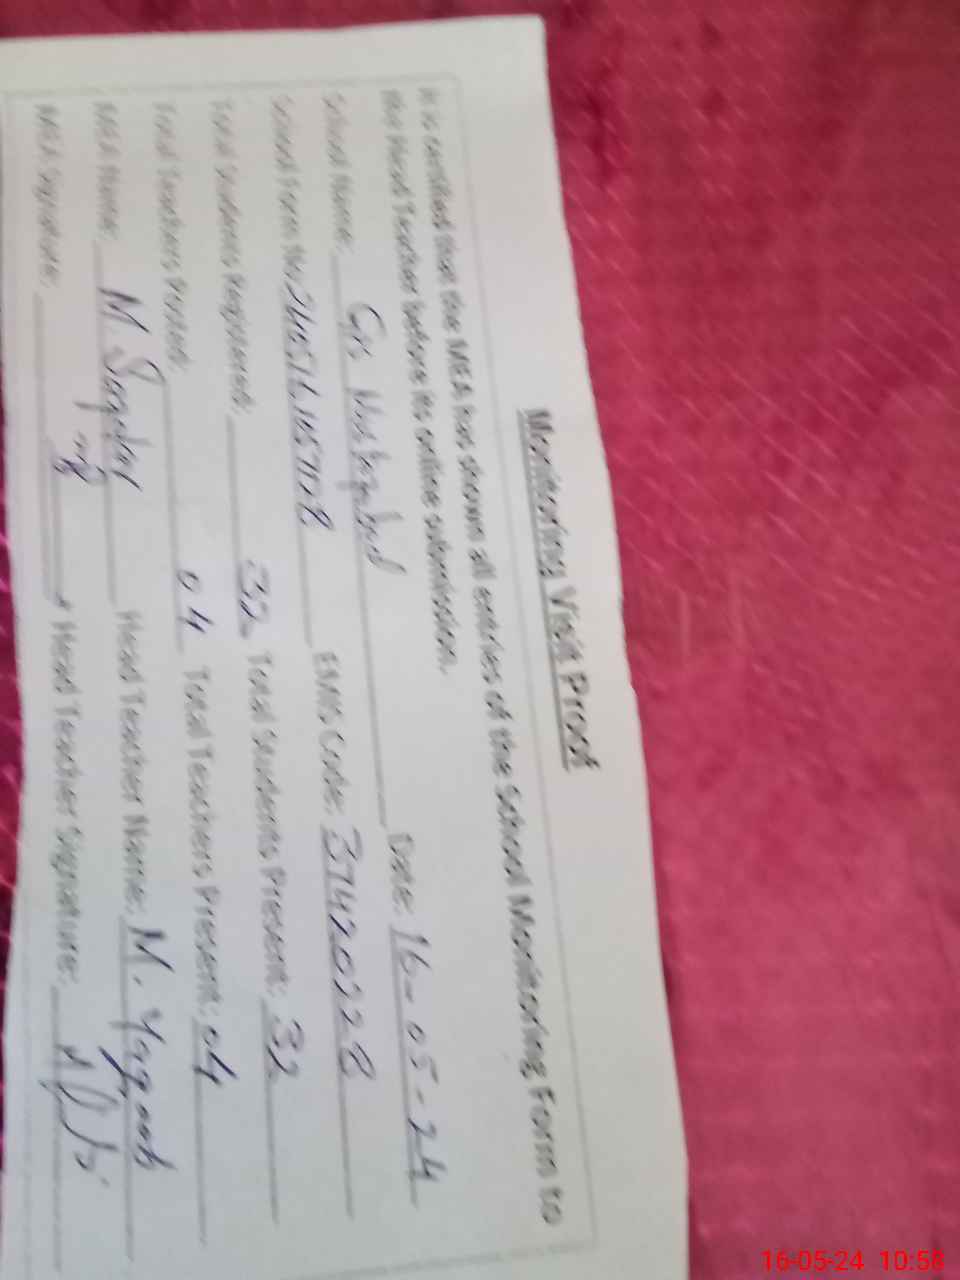 Monitoring Visit Proof
It is certified that the MEA has shown all entries of the School Monitoring Form to
the Head Teacher before its online submission.
School Name: Date: 16-05-24
School Form No: EMIS Code: 37420228
Total Students Registered: 32 Total Students Present: 32
Total Teachers Posted: 04 Total Teachers Present: 04
MEA Name: M. Head Teacher Name: M. Yaqoob
MEA Signature: Head Teacher Signature:
16-05-24 10:58